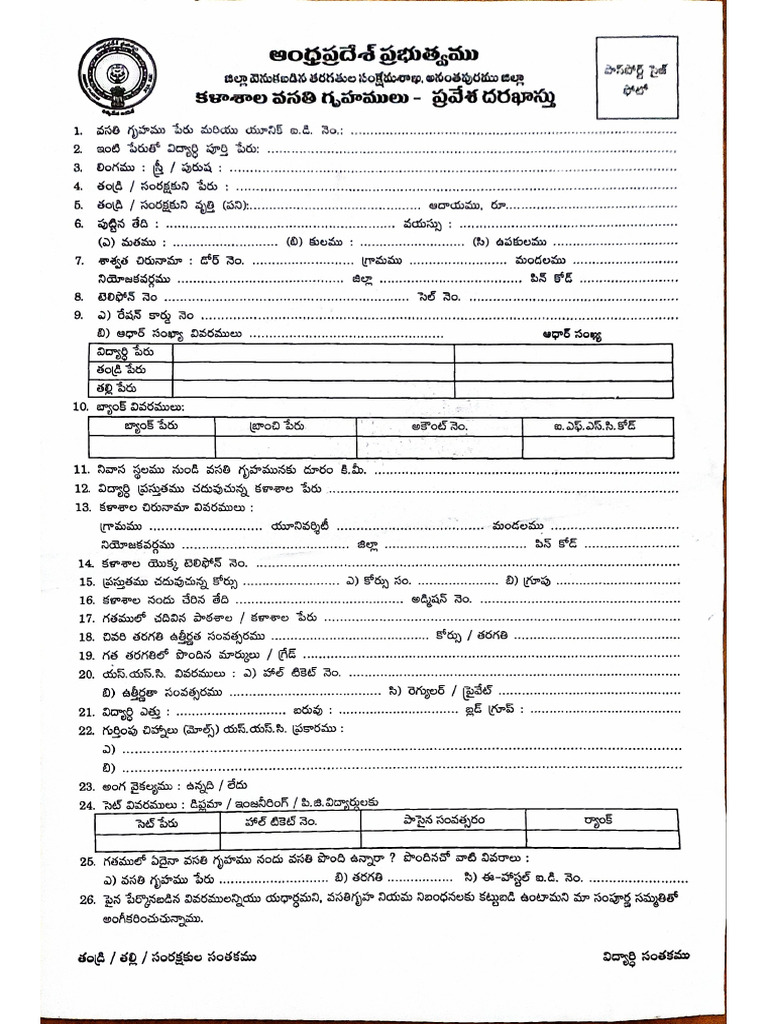 ఆంధ్రప్రదేశ్ ప్రభుత్వము
జిల్లా వెనుకబడిన తరగతుల సంక్షేమశాఖ, అనంతపురము జిల్లా
కళాశాల వసతి గృహములు - ప్రవేశ దరఖాస్తు
పాస్‌పోర్ట్ సైజ్
ఫోటో
1. వసతి గృహము పేరు మరియు యూనిక్ ఐ.డి. నెం.: ..........
2. ఇంటి పేరుతో విద్యార్థి పూర్తి పేరు: ..........
3. లింగము : స్త్రీ / పురుష : ..........
4. తండ్రి / సంరక్షకుని పేరు : ..........
5. తండ్రి / సంరక్షకుని వృత్తి (పని):.......... ఆదాయము, రూ..........
6. పుట్టిన తేది : .......... వయస్సు : ..........
(ఎ) మతము : .......... (బి) కులము : .......... (సి) ఉపకులము ..........
7. శాశ్వత చిరునామా : డోర్ నెం. .......... గ్రామము .......... మండలము ..........
నియోజకవర్గము .......... జిల్లా .......... పిన్ కోడ్ ..........
8. టెలిఫోన్ నెం .......... సెల్ నెం. ..........
9. ఎ) రేషన్ కార్డు నెం ..........
బి) ఆధార్ సంఖ్యా వివరములు .......... ఆధార్ సంఖ్య
విద్యార్థి పేరు
తండ్రి పేరు
తల్లి పేరు
10. బ్యాంక్ వివరములు:
బ్యాంక్ పేరు బ్రాంచి పేరు అకౌంట్ నెం. ఐ.ఎఫ్.ఎస్.సి.కోడ్
11. నివాస స్థలము నుండి వసతి గృహమునకు దూరం కి.మీ. ..........
12. విద్యార్థి ప్రస్తుతము చదువుచున్న కళాశాల పేరు ..........
13. కళాశాల చిరునామా వివరములు :
గ్రామము .......... యూనివర్శిటీ .......... మండలము ..........
నియోజకవర్గము .......... జిల్లా .......... పిన్ కోడ్ ..........
14. కళాశాల యొక్క టెలిఫోన్ నెం. ..........
15. ప్రస్తుతము చదువుచున్న కోర్సు .......... ఎ) కోర్సు సం. .......... బి) గ్రూపు ..........
16. కళాశాల నందు చేరిన తేది .......... అడ్మిషన్ నెం. ..........
17. గతములో చదివిన పాఠశాల / కళాశాల పేరు ..........
18. చివరి తరగతి ఉత్తీర్ణత సంవత్సరము .......... కోర్సు / తరగతి ..........
19. గత తరగతిలో పొందిన మార్కులు / గ్రేడ్ ..........
20. యస్.యస్.సి. వివరములు : ఎ) హాల్ టికెట్ నెం. ..........
బి) ఉత్తీర్ణతా సంవత్సరము .......... సి) రెగ్యులర్ / ప్రైవేట్ ..........
21. విద్యార్థి ఎత్తు : .......... బరువు : .......... బ్లడ్ గ్రూప్ : ..........
22. గుర్తింపు చిహ్నాలు (మోల్స్) యస్.యస్.సి. ప్రకారము :
ఎ) ..........
బి) ..........
23. అంగ వైకల్యము : ఉన్నది / లేదు
24. సెట్ వివరములు : డిప్లమా / ఇంజనీరింగ్ / పి.జి.విద్యార్థులకు
సెట్ పేరు హాల్ టికెట్ నెం. పాసైన సంవత్సరం ర్యాంక్
25. గతములో ఏదైనా వసతి గృహము నందు వసతి పొంది ఉన్నారా ? పొందినచో వాటి వివరాలు :
ఎ) వసతి గృహము పేరు .......... బి) తరగతి .......... సి) ఈ-హాస్టల్ ఐ.డి. నెం. ..........
26. పైన పేర్కొనబడిన వివరములన్నియు యధార్థమని, వసతిగృహ నియమ నిబంధనలకు కట్టుబడి ఉంటామని మా సంపూర్ణ సమ్మతితో
అంగీకరించుచున్నాము.
తండ్రి / తల్లి / సంరక్షకుల సంతకము విద్యార్థి సంతకము